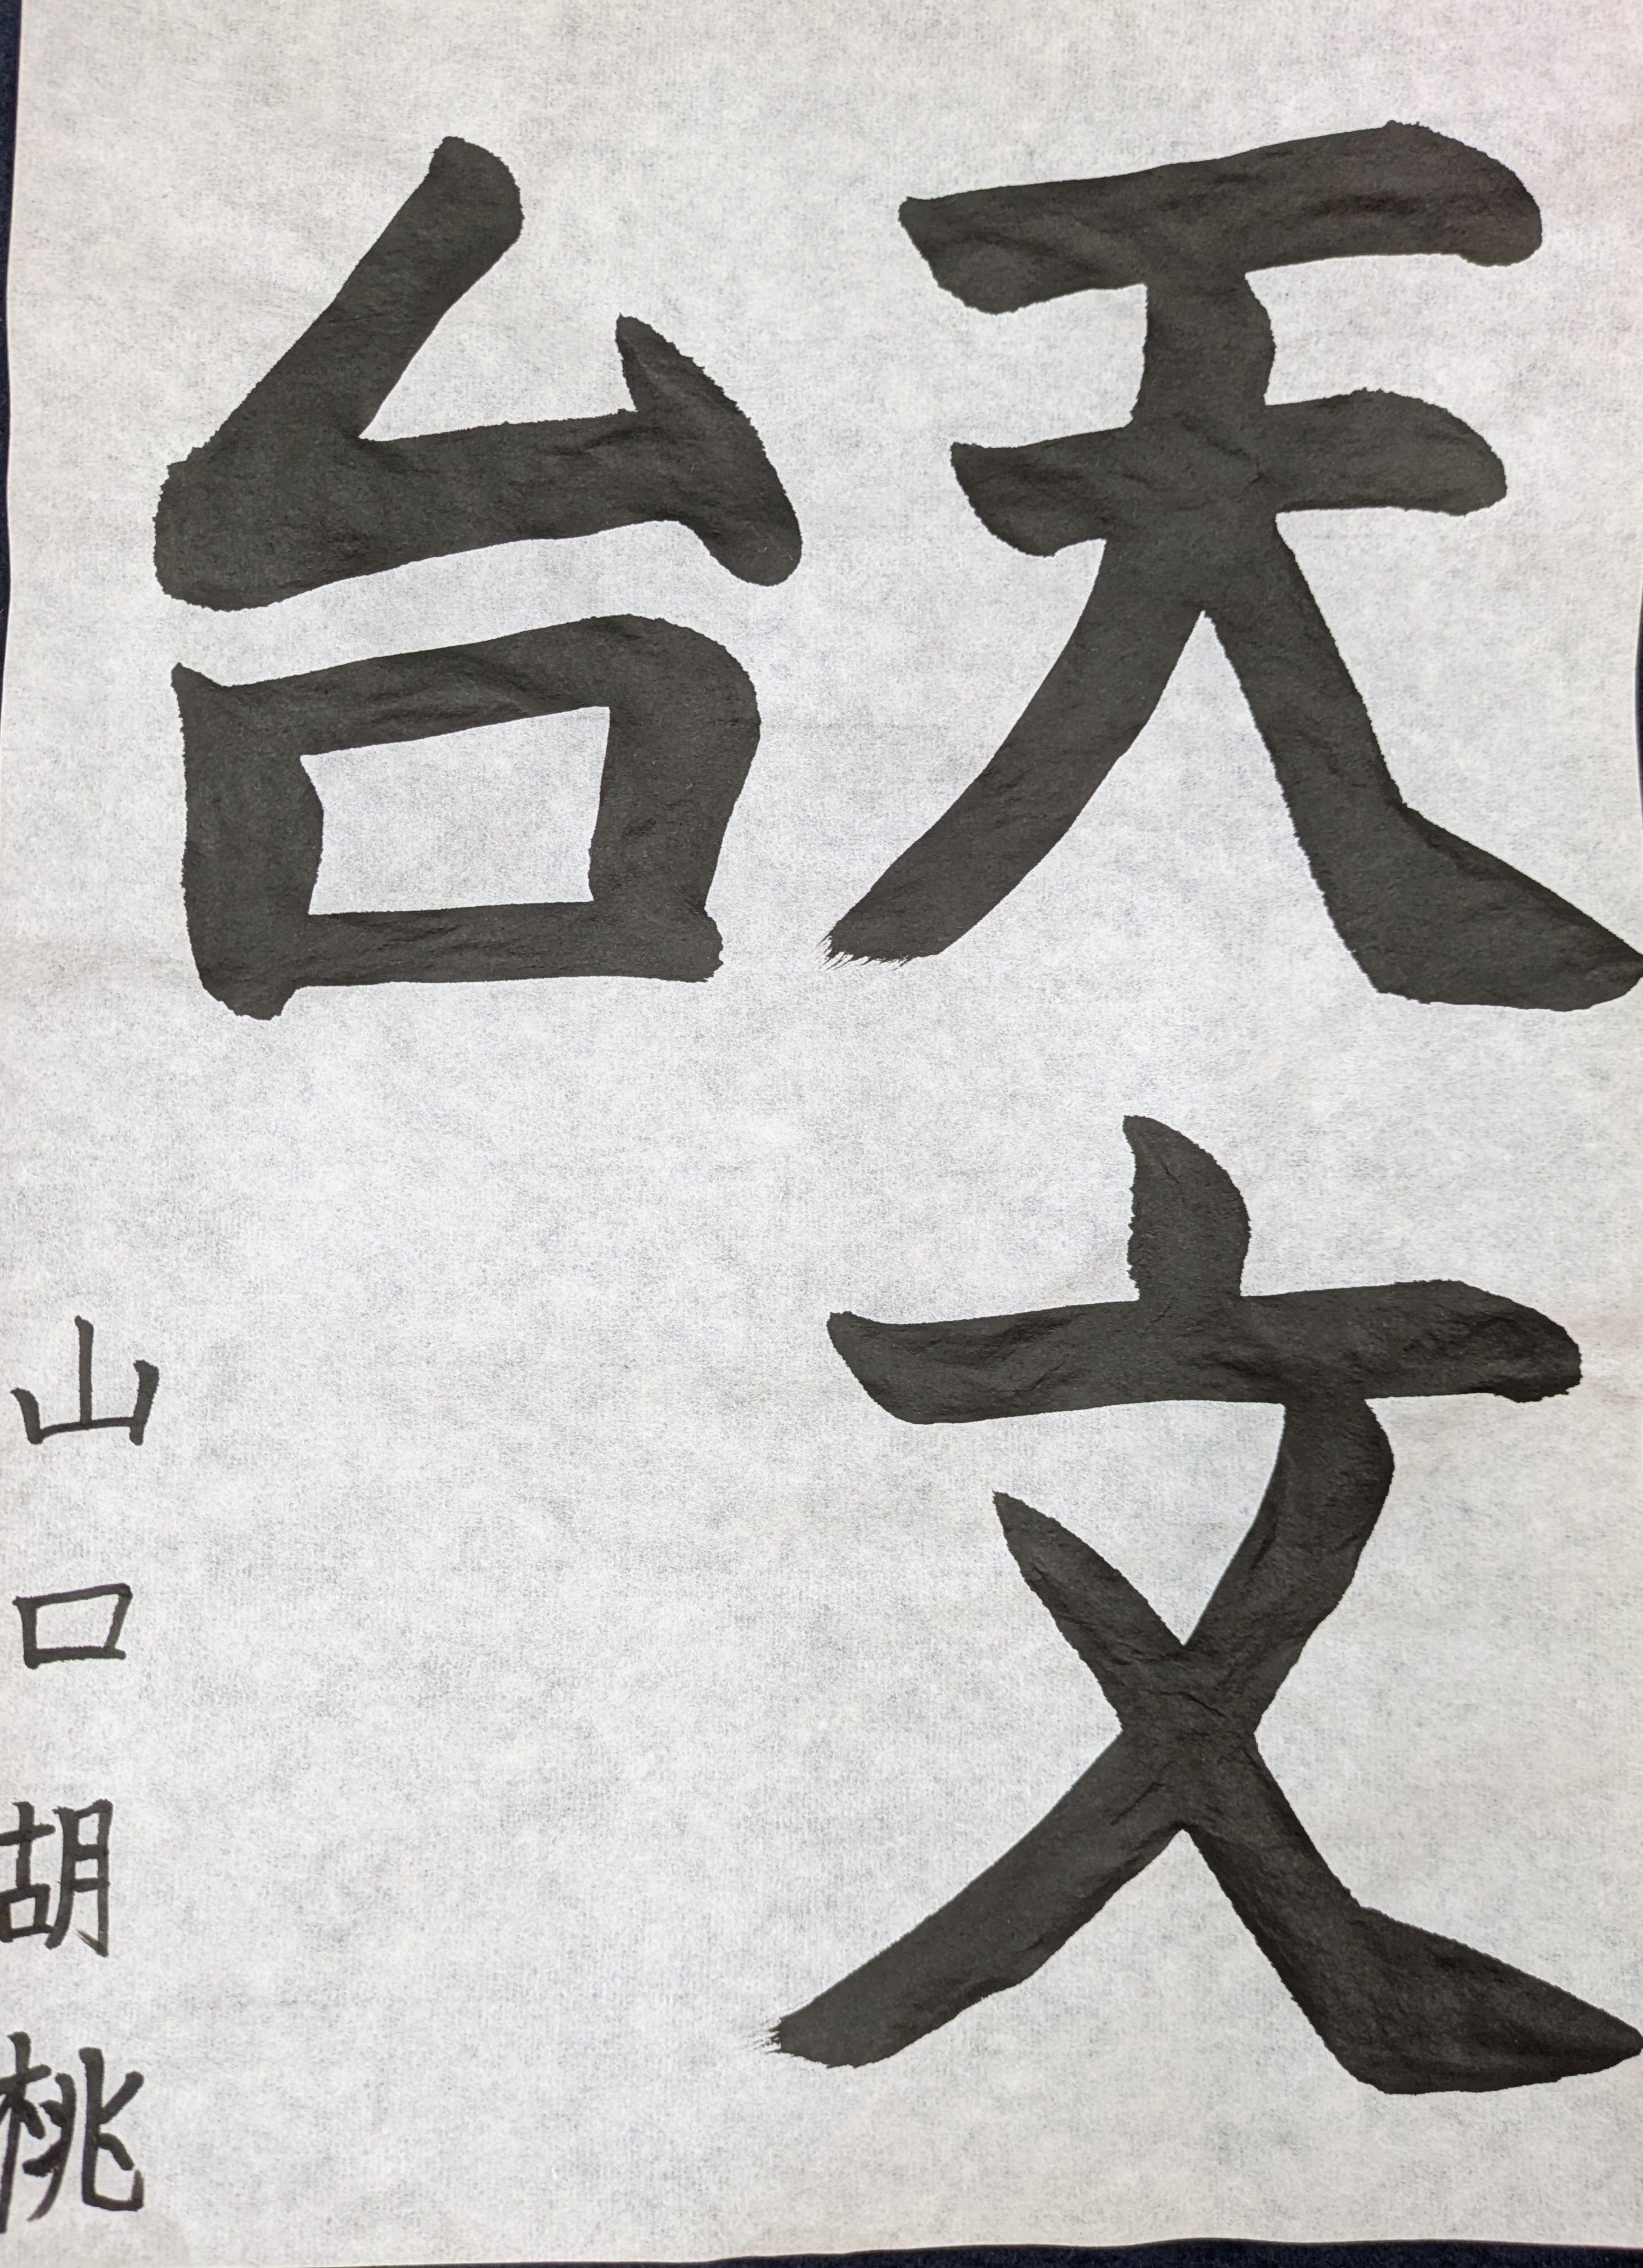 天文
台
山口胡桃